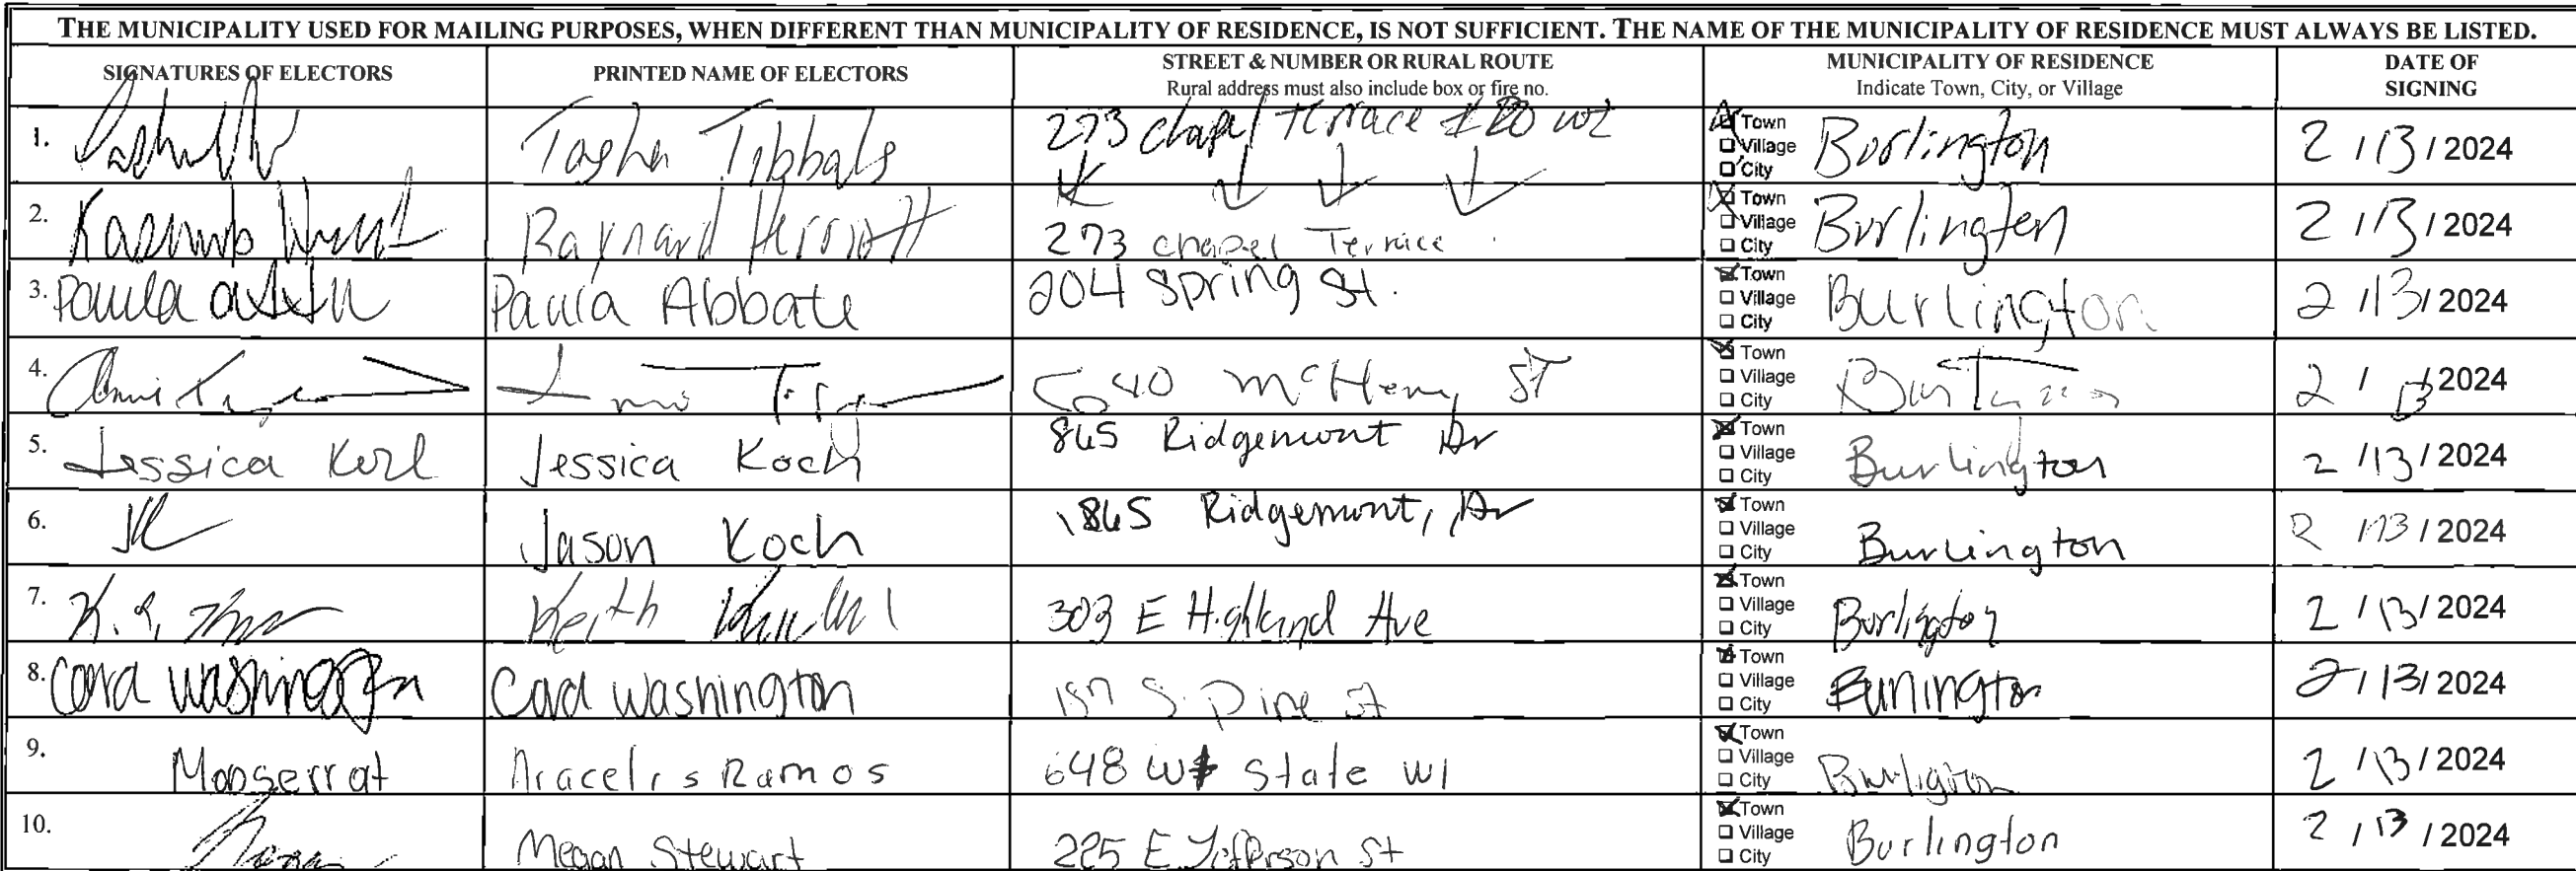 THE MUNICIPALITY USED FOR MAILING PURPOSES, WHEN DIFFERENT THAN MUNICIPALITY OF RESIDENCE, IS NOT SUFFICIENT. THE NAME OF THE MUNICIPALITY OF RESIDENCE MUST ALWAYS BE LISTED.
SIGNATURES OF ELECTORS PRINTED NAME OF ELECTORS STREET & NUMBER OR RURAL ROUTE MUNICIPALITY OF RESIDENCE DATE OF SIGNING
Rural address must also include box or fire no. Indicate Town, City, or Village
1. Tasha Tibbals 273 chapel terrace Town Village City Burlington 2/13/2024
2. Raynard Herriott 273 chapel Terrace Town Village City Burlington 2/13/2024
3. Paula Paula Abbate 204 Spring St. Town Village City Burlington 2/13/2024
4. 640 McHenry ST Town Village City 2/13/2024
5. Jessica Jessica Koch 865 Ridgemont Dr Town Village City Burlington 2/13/2024
6. JK Jason Koch 865 Ridgemont, Dr Town Village City Burlington 2/13/2024
7. Keith 303 E Highland Ave Town Village City Burlington 2/13/2024
8. Washington Washington S. Pine st Town Village City Burlington 2/13/2024
9. Monserrat Aracelis Ramos 648 State WI Town Village City Burligton 2/13/2024
10. Megan Stewart 225 E Jefferson St Town Village City Burlington 2/13/2024